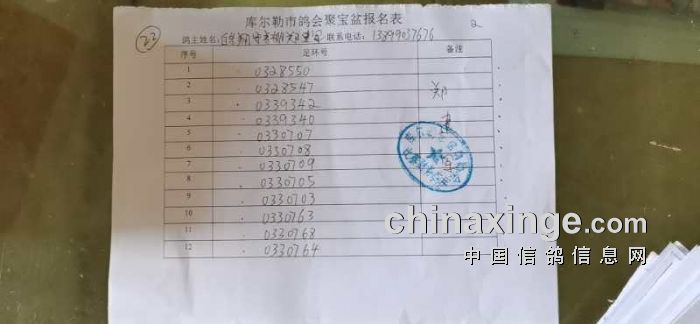 库尔勒市鸽会聚宝盆报名表
2
23
鸽主姓名: 联系电话: 13899037676
序号 足环号 备注
1 0328550
2 0328547 郑
3 0339342
4 0339340 建
5 0330707
6 0330708
7 0330709
8 0330705
9 0330703
10 0330763
11 0330768
12 0330764
chinaxinge.com
中国信鸽信息网